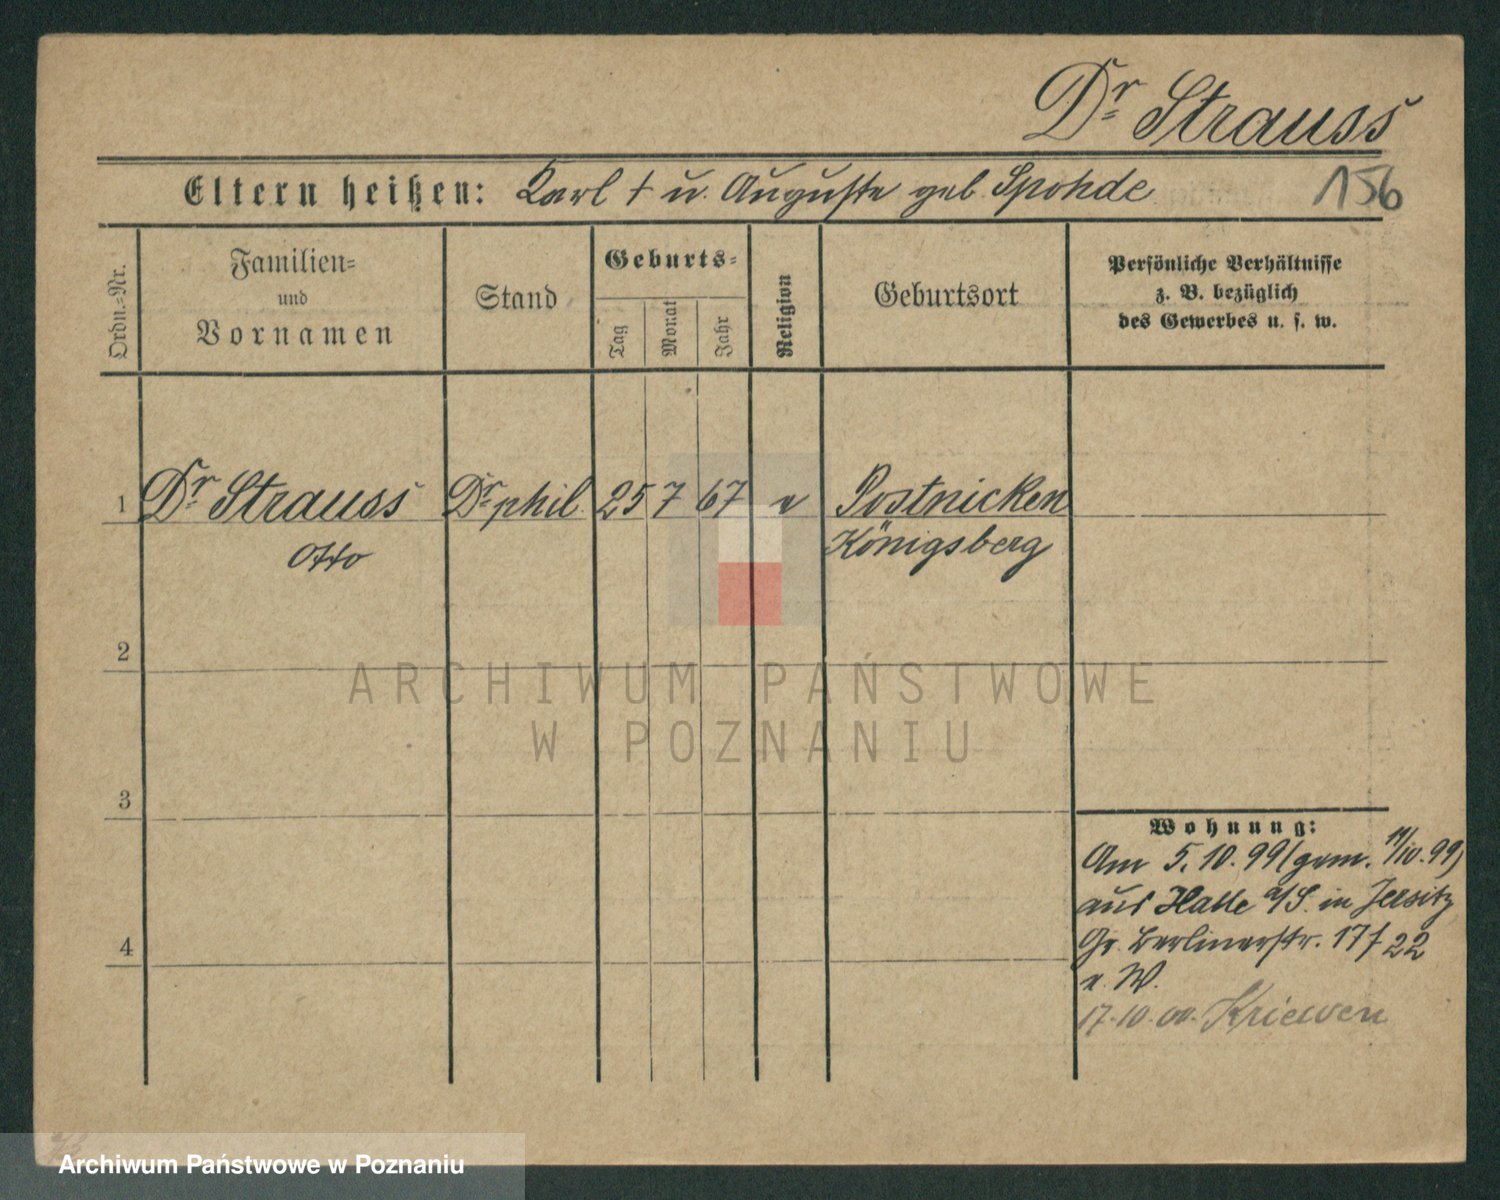 Dr Strauss
Eltern heißen: Karl † u. Auguste geb. Spohde
156
Ordn.-Nr.
Familien-
und
Vornamen
Stand
Geburts-
Tag
Monat
Jahr
Religion
Geburtsort
Persönliche Verhältnisse
z. B. bezüglich
des Gewerbes u. s. w.
1 Dr Strauss Dr phil. 25 7 67 e Postnicken
Otto Königsberg
2
ARCHIWUM PAŃSTWOWE
W POZNANIU
3
4
Wohnung:
Am 5.10.99 (gem. 11/10.99)
aus Halle a/S. in Jersitz
Gr. Berlinerstr. 17 f 22
W.
17.10.00. Kriewen
Archiwum Państwowe w Poznaniu